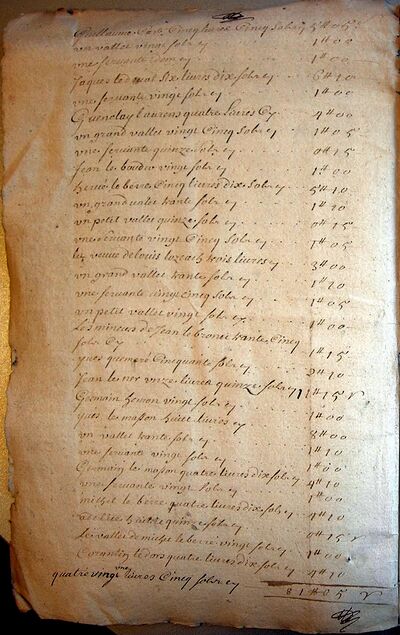 Guillaume Cinq livres Cinq sols cy 5# 05
vn vallet vingt sols cy 1# 00
vne servante Idem cy 1# 00
Jaques six livres dix sols cy 6# 10
vne servante vingt sols cy 1# 00
Guenolay laurens quatre livres Cy 4# 00
vn grand vallet vingt Cinq sols cy 1# 05
vne servante quinze sols cy 0# 15
Jean le baudir vingt sols cy 1# 00
hervé le berre Cinq livres dix sols cy 5# 10
vn grand valet trante sols cy 1# 10
vn petit vallet quinze sols cy 0# 15
vne servante vingt Cinq sols cy 1# 05
la veuve de louis trois livres cy 3# 00
vn grand vallet trante sols cy 1# 10
vne servante vingt Cinq sols cy
vn petit vallet vingt sols cy
Les mineurs de Jean le trante Cinq 1# 00
sols Cy 1# 15
yves quemeré Cinquante sols cy 2# 10
Jean le vnze livres quinze sols cy 11# 15
Germain vingt sols cy 1# 00
yves le masson huict livres cy 8# 00
vn vallet trante sols cy 1# 10
vne servante vingt sols cy 1# 00
Germain le masson quatre livres dix sols cy 4# 10
vne servante vingt sols cy 1# 00
michel le berre quatre livres dix sols cy 4# 10
quinze sols cy 0# 15
Le vallet de michel le berre vingt sols cy 1# 00
Corantin quatre livres dix sols cy 4# 10
quatre vingt vnes livres Cinq sols cy 81# 05